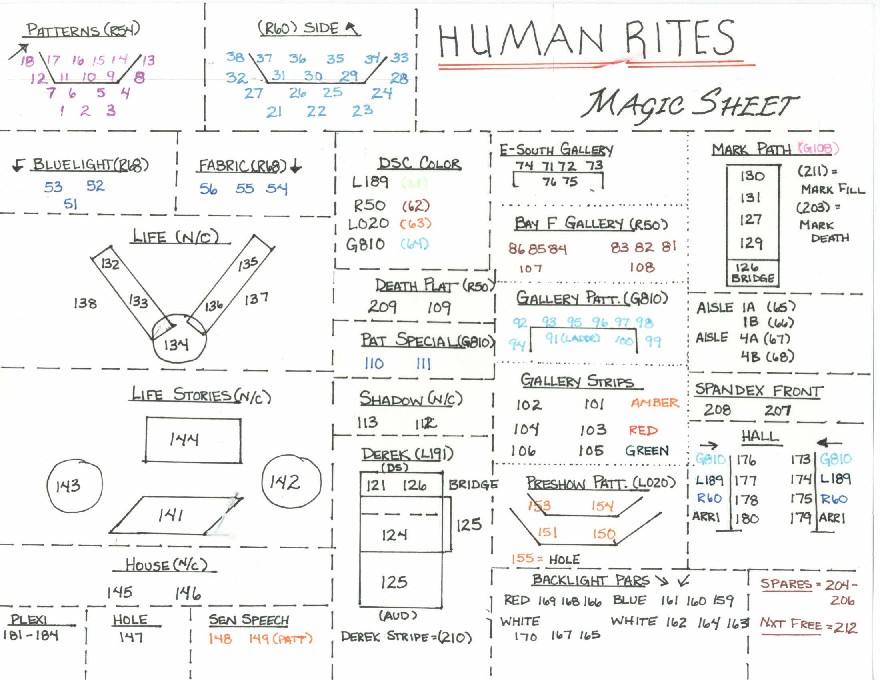 HUMAN RITES
MAGIC SHEET
PATTERNS (R54)
18 17 16 15 14 13
12 11 10 9 8
7 6 5 4
1 2 3
(R60) SIDE
38 37 36 35 34 33
32 31 30 29 28
27 26 25 24
21 22 23
BLUELIGHT (R68)
53 52
51
FABRIC (R68)
56 55 54
LIFE (N/C)
132 135
138 133 136 137
134
LIFE STORIES (N/C)
144
143 142
141
HOUSE (N/C)
145 146
PLEXI
181-184
HOLE
147
SEN SPEECH
148 149 (PATT)
DSC COLOR
L189
R50 (62)
L020 (63)
G810 (64)
DEATH PLAT (R50)
209 109
PAT SPECIAL (G810)
110 111
SHADOW (N/C)
113 112
DEREK (L191)
(DS)
121 126 BRIDGE
124 125
125
(AUD)
DEREK STRIPE = (210)
E-SOUTH GALLERY
74 71 72 73
76 75
BAY F GALLERY (R50)
86 85 84 83 82 81
107 108
GALLERY PATT. (G810)
92 93 95 96 97 98
94 91 (LADDE) 100 99
GALLERY STRIPS
102 101 AMBER
104 103 RED
106 105 GREEN
PRESHOW PATT. (L020)
153 154
151 150
155 = HOLE
BACKLIGHT PARS
RED 169 168 166 BLUE 161 160 159
WHITE WHITE 162 164 163
170 167 165
MARK PATH (G108)
130
131
127
129
126
BRIDGE
(211) =
MARK FILL
(203) =
MARK
DEATH
AISLE 1A (65)
1B (66)
AISLE 4A (67)
4B (68)
SPANDEX FRONT
208 207
HALL
G810 176 173 G810
L189 177 174 L189
R60 178 175 R60
ARRI 180 179 ARRI
SPARES = 204-
206
NXT FREE = 212